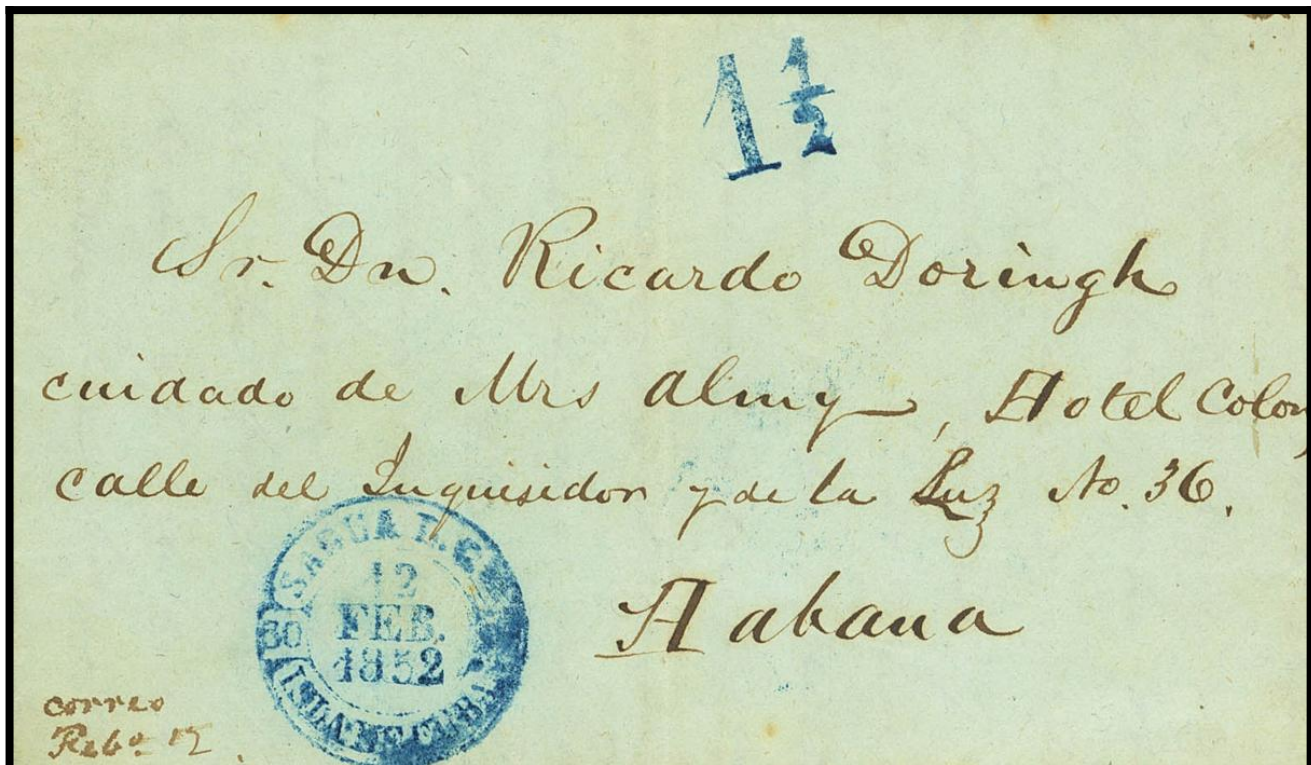 1 1/2
Sr. Dn. Ricardo Doringh
cuidado de Mrs Almy, Hotel Colon,
calle del Inquisidor y de la Luz No. 36.
Habana
SAGUA L. G.
12
FEB.
1852
ISLA DE CUBA
correo
12